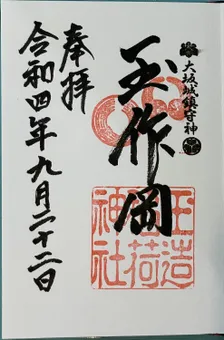 大坂城鎮守神
玉作岡
玉造
稲荷
神社
奉拝
令和四年九月二十二日